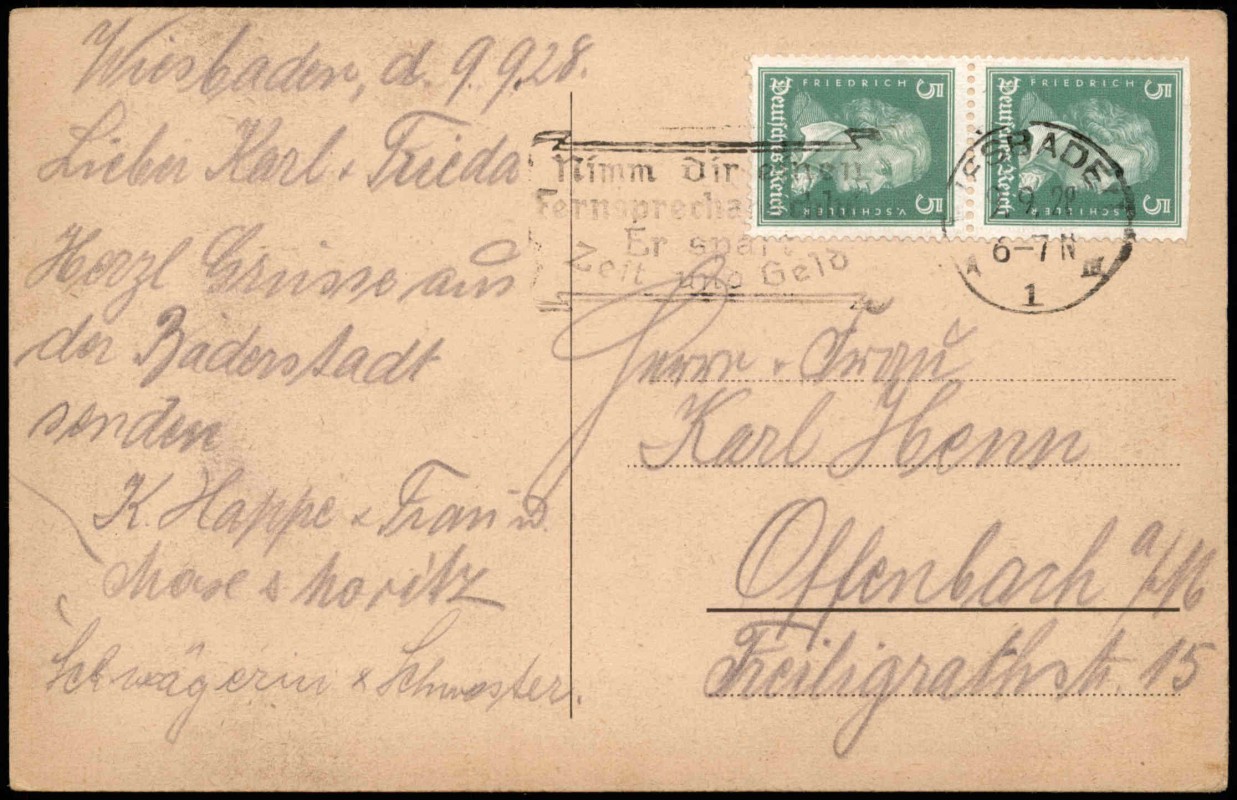 Wiesbaden, d. 9.9.28.
Lieber Karl + Frieda
Herzl Grüsse aus
der Bäderstadt
senden
K. Happe + Frau u.
Moritz
Schwägerin & Schwester.
Nimm Dir einen
Fernsprechanschluß
Er spart
Zeit und Geld
FRIEDRICH
5
Deutsches Reich
V. SCHILLER
5
FRIEDRICH
5
Deutsches Reich
SCHILLER
5
WIESBADEN
9. 28
6-7 N
1
Herrn + Frau
Karl Henn
Offenbach a/M
Freiligrathstr. 15